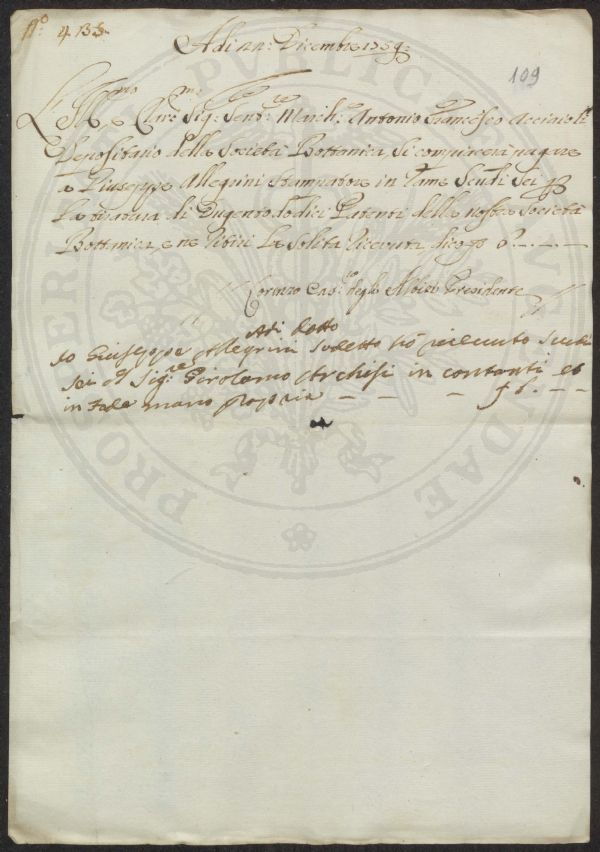 N.º 4 135.
Adi 22: Dicembre 1759:
109
L'Ill:mo e Clar:mo Sig:re Sen:re March: Antonio Francesco Acciaioli
Depositario della Società Bottanica, Si compiacerà pagare
a Giuseppe Allegrini Stampatore in Rame Scudi Sei p
La tiratura di Dugentododici Patenti della nostra Società
Bottanica, e ne ritiri La Solita ricevuta dico
Lorenzo Cav:re degli Albizi Presidente
Adi detto
Io Giuseppe Allegrini sudetto ò riceuuto Scudi
Sei dal Sig:re Girolamo in contanti et
in fede mano propria — — — 6. — —
PROSPERITATI PUBLICAE AUGENDAE